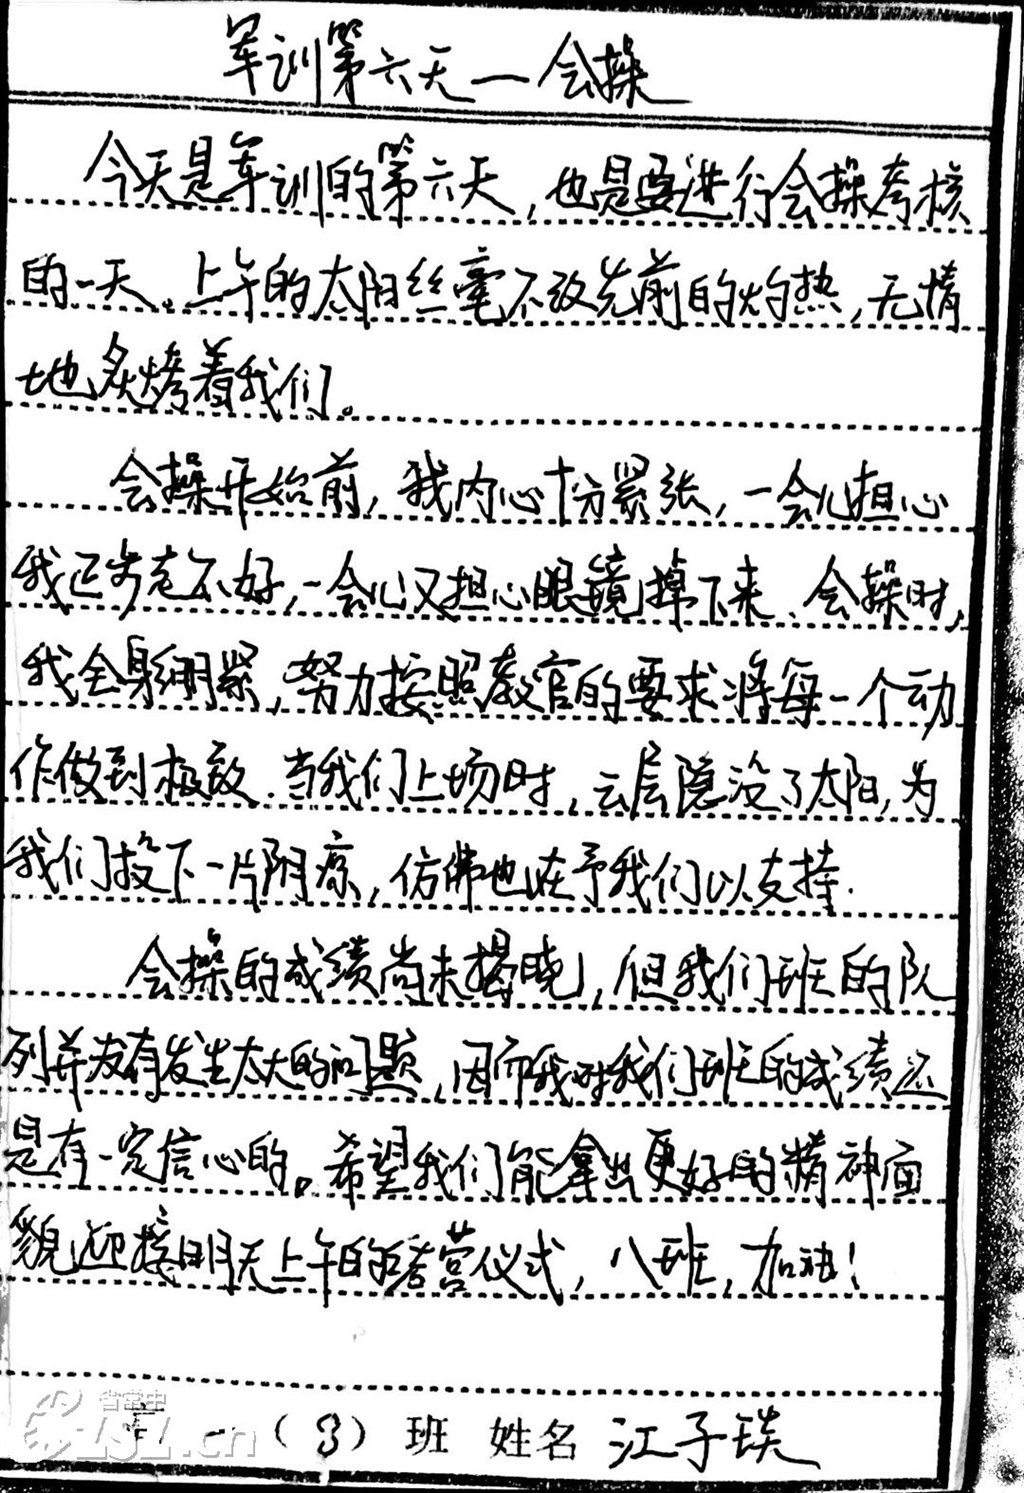 军训第六天—会操
今天是军训的第六天，也是要进行会操考核
的一天。上午的太阳丝毫不改先前的灼热，无情
地炙烤着我们。
会操开始前，我内心十分紧张，一会儿担心
我正步走不好，一会儿又担心眼镜掉下来．会操时，
我全身绷紧，努力按照教官的要求将每一个动
作做到极致．当我们上场时，云层隐没了太阳，为
我们投下一片阴凉，仿佛也在予我们以支持．
会操的成绩尚未揭晓，但我们班的队
列并没有发生太大的问题，因而我对我们班的成绩还
是有一定信心的。希望我们能拿出更好的精神面
貌迎接明天上午的结营仪式，八班，加油！
省常中
高一（8）班 姓名 江子琰